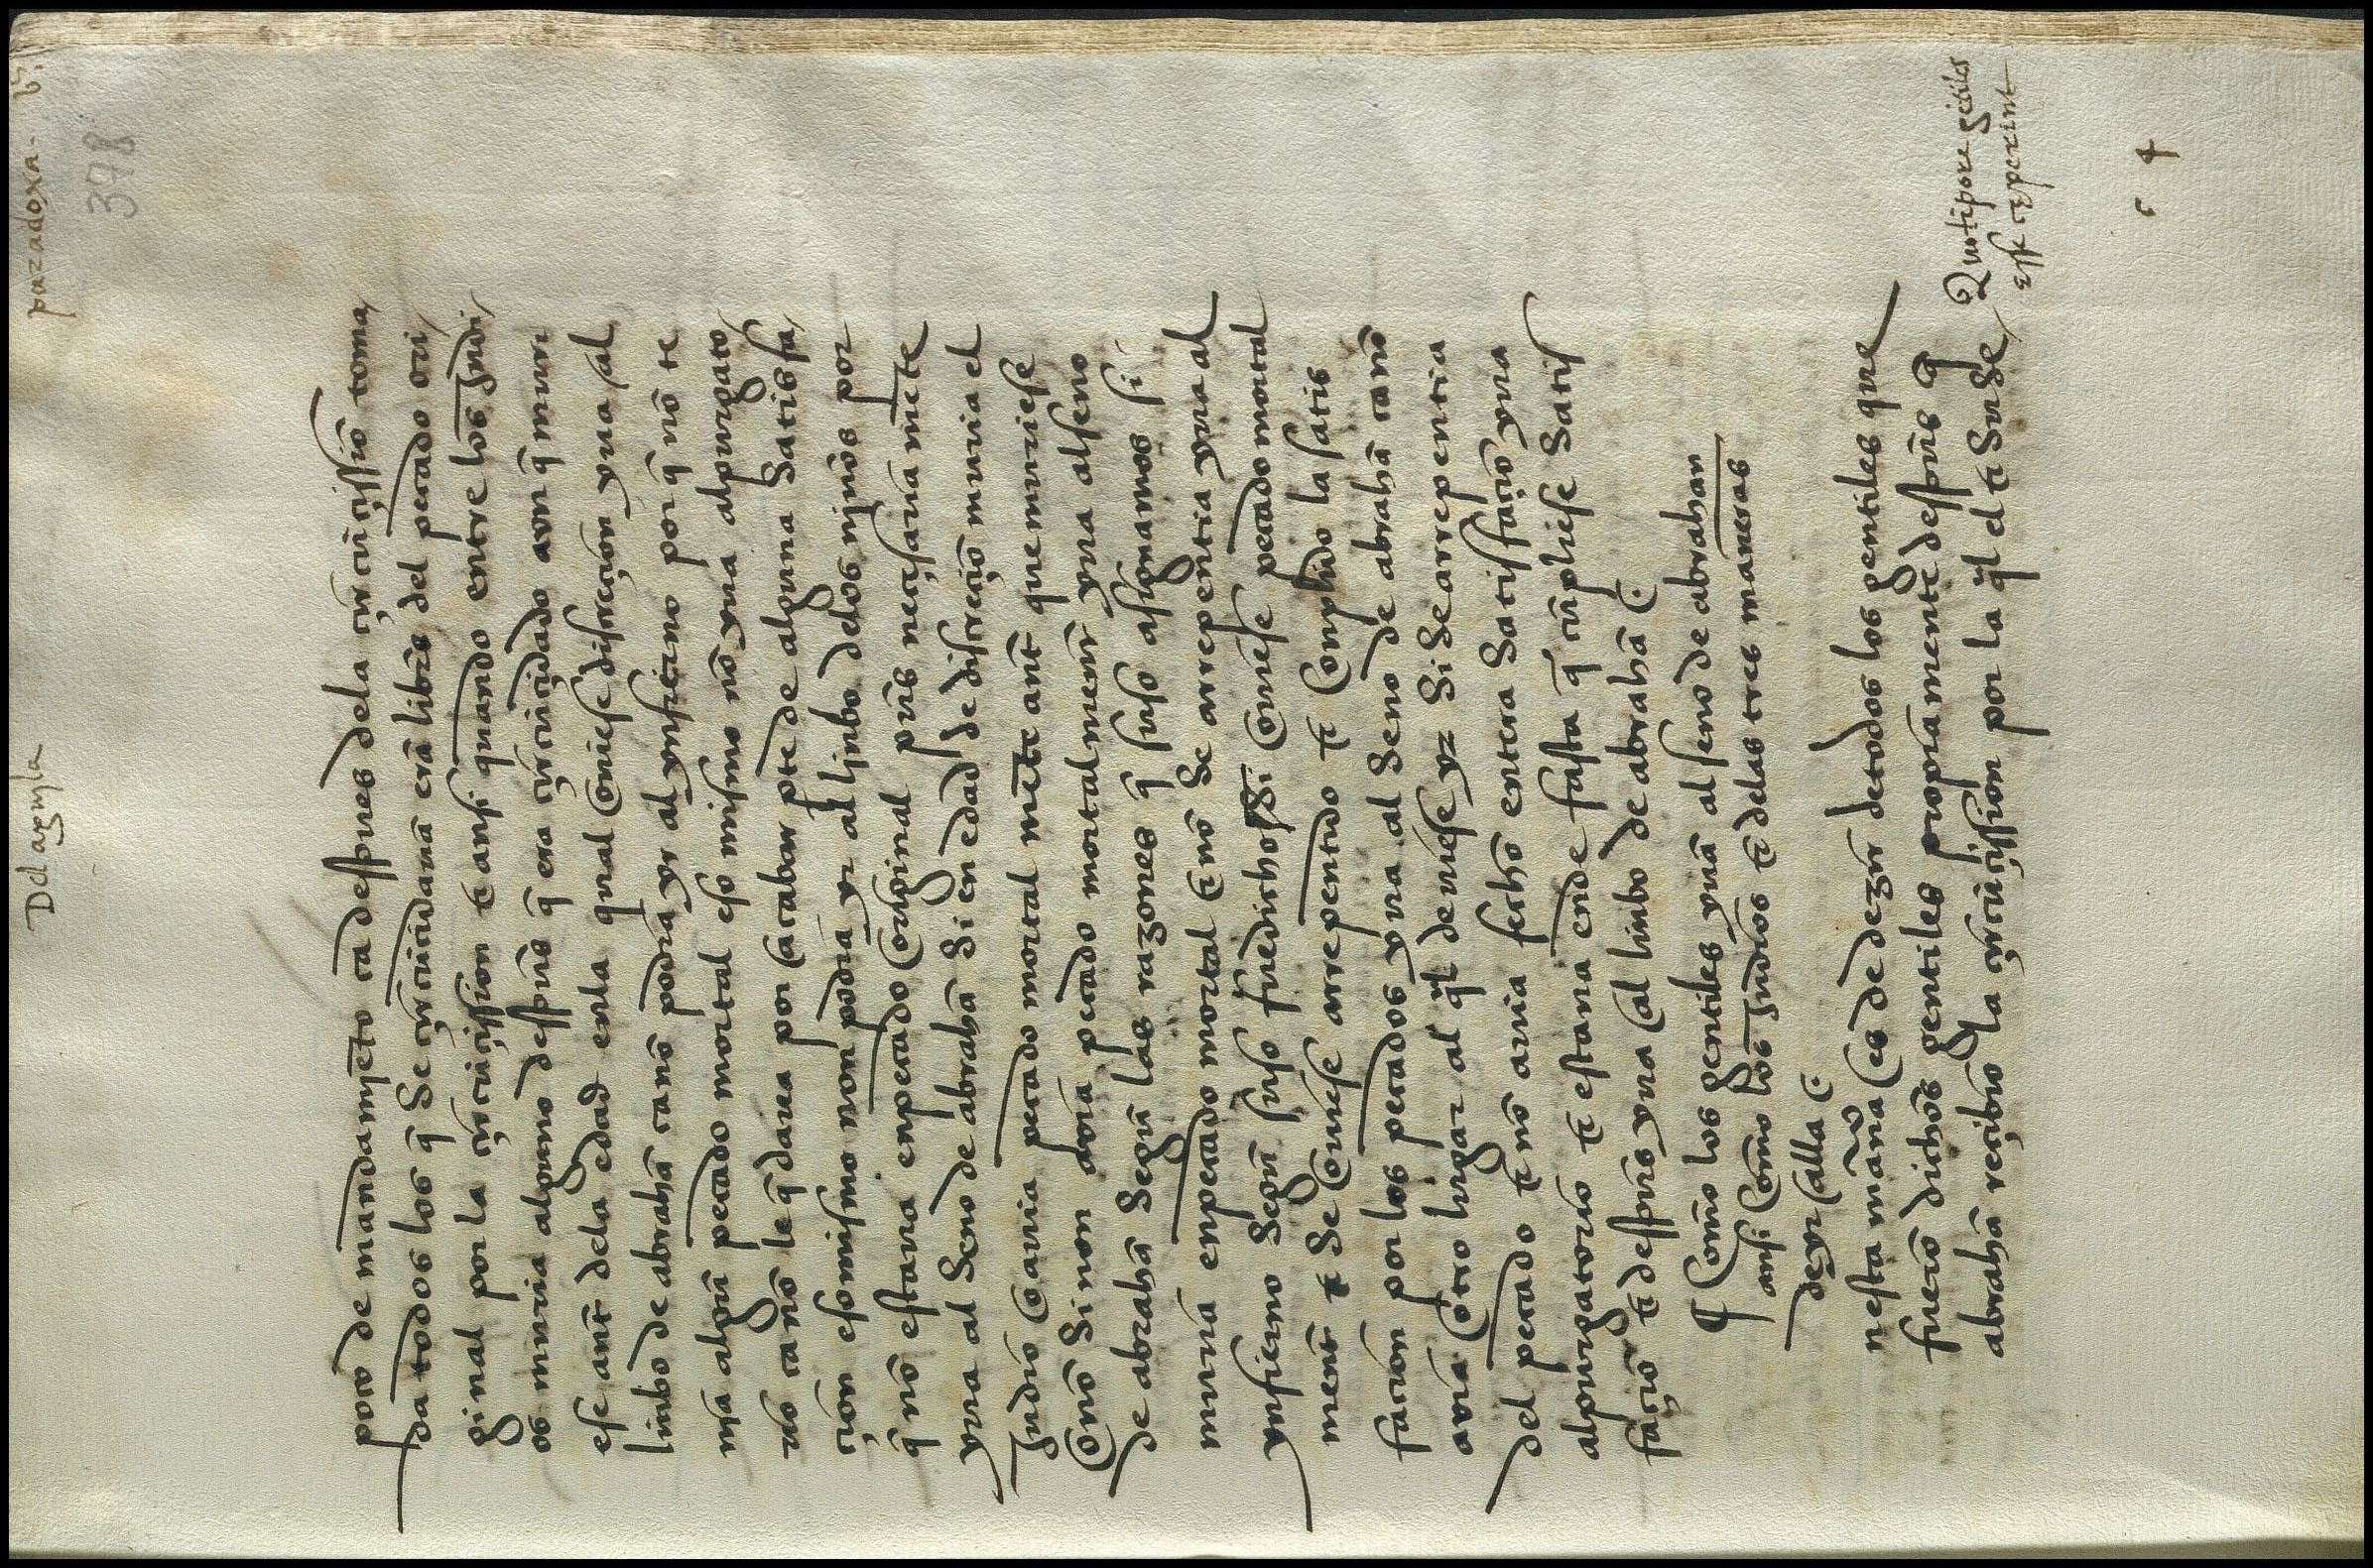 Del aguyla
paradoxa. b?.
378
poco de mandamjẽto ca despues dela çircũçissiõ toma
da todos los q̃ se circũcidauã erã libr̃s del pecado ori
ginal por la çircũçission ẽ ansi quando entre los judi
os muria alguno despũs q̃ era çircũcidado avn q̃ muri
ese ant̃ dela edad enla qual touiese discreçion yua al
linbo de abrahã ca nõ podria yr al ynfierno por q̃ nõ te
nja algũ pecado mortal eso mismo nõ yua al purgato
rio ca nõ le q̃daua por acabar pte de alguna satisfa
çion eso mismo non podia yr al ljnbo delos njños por
q̃ nõ estaua en pecado original pũs neçesaria mẽte
yua al seno de abrahã si en edad de discreçiõ muria el
judio o auia pecado mortal mẽte ant̃ que muriese
o nõ si non avia pecado mortalment̃ yua al seno
de abrahã segũ las razones q̃ suso asignamos si
muria en pecado mortal ẽ nõ se arrepentia yua al
ynfierno segũ suso fue dicho si ouiese pecado mortal
ment̃ ẽ se ouiese arrepentido ẽ conplido la satis
facion por los pecados yua al seno de abrahã ca nõ
auia otro lugar al q̃l deuiese yr si se arrepentia
del pecado ẽ nõ auia fecho entera satisfaciõ yua
al purgatorio ẽ estaua ende fasta q̃ cũpliese satis
façiõ ẽ despũs yua al linbo de abrahã
¶ Como los gentiles yuã al seno de abrahan
ansi como los judios ẽ delas tres maneras
de yr alla
nesta mãna es de dezir de todos los gentiles que
fuerõ dichos gentiles propiamente despũs q̃
abrahã reçibio la çircũçission por la q̃l el ẽ sus de
Quo tẽpore gẽtiles
esse ceperint